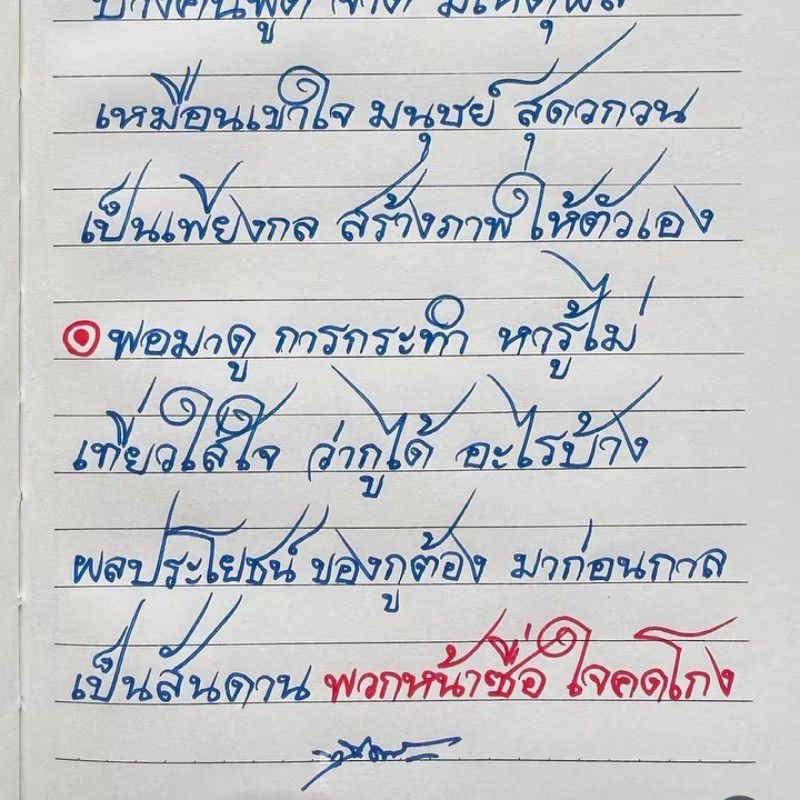 บางคนพูดจาดี มีเหตุผล
เหมือนเข้าใจ มนุษย์ สุดวกวน
เป็นเพียงกล สร้างภาพ ให้ตัวเอง
พอมาดู การกระทำ หารู้ไม่
เที่ยวใส่ใจ ว่ากูได้ อะไรบ้าง
ผลประโยชน์ ของกูต้อง มาก่อนกาล
เป็นสันดาน พวกหน้าซื่อ ใจคดโกง